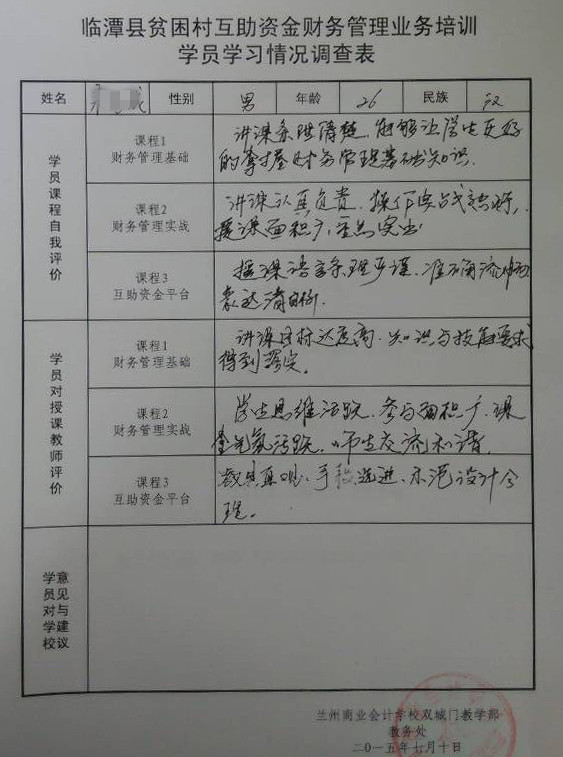 临潭县贫困村互助资金财务管理业务培训
学员学习情况调查表
姓名 性别 男 年龄 26 民族 汉
学员课程自我评价
课程1
财务管理基础
讲课条理清楚,能够让学生更好
的掌握财务管理基础知识.
课程2
财务管理实战
讲课认真负责,操作实战熟练,
授课面积广,重点突出
课程3
互助资金平台
授课语言条理严谨,准确流畅
表达清晰.
学员对授课教师评价
课程1
财务管理基础
讲课目标达度高.知识与技能要求
得到落实.
课程2
财务管理实战
学生思维活跃.参与面积广.课
堂气氛活跃,师生交流和谐.
课程3
互助资金平台
教具直观、手段先进、示范设计合
理。
学员对学
意见与建议
兰州商业会计学校双城门教学部
教务处
二〇一五年七月十日